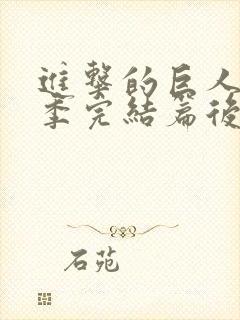 進撃的巨人
季完結篇後
石苑